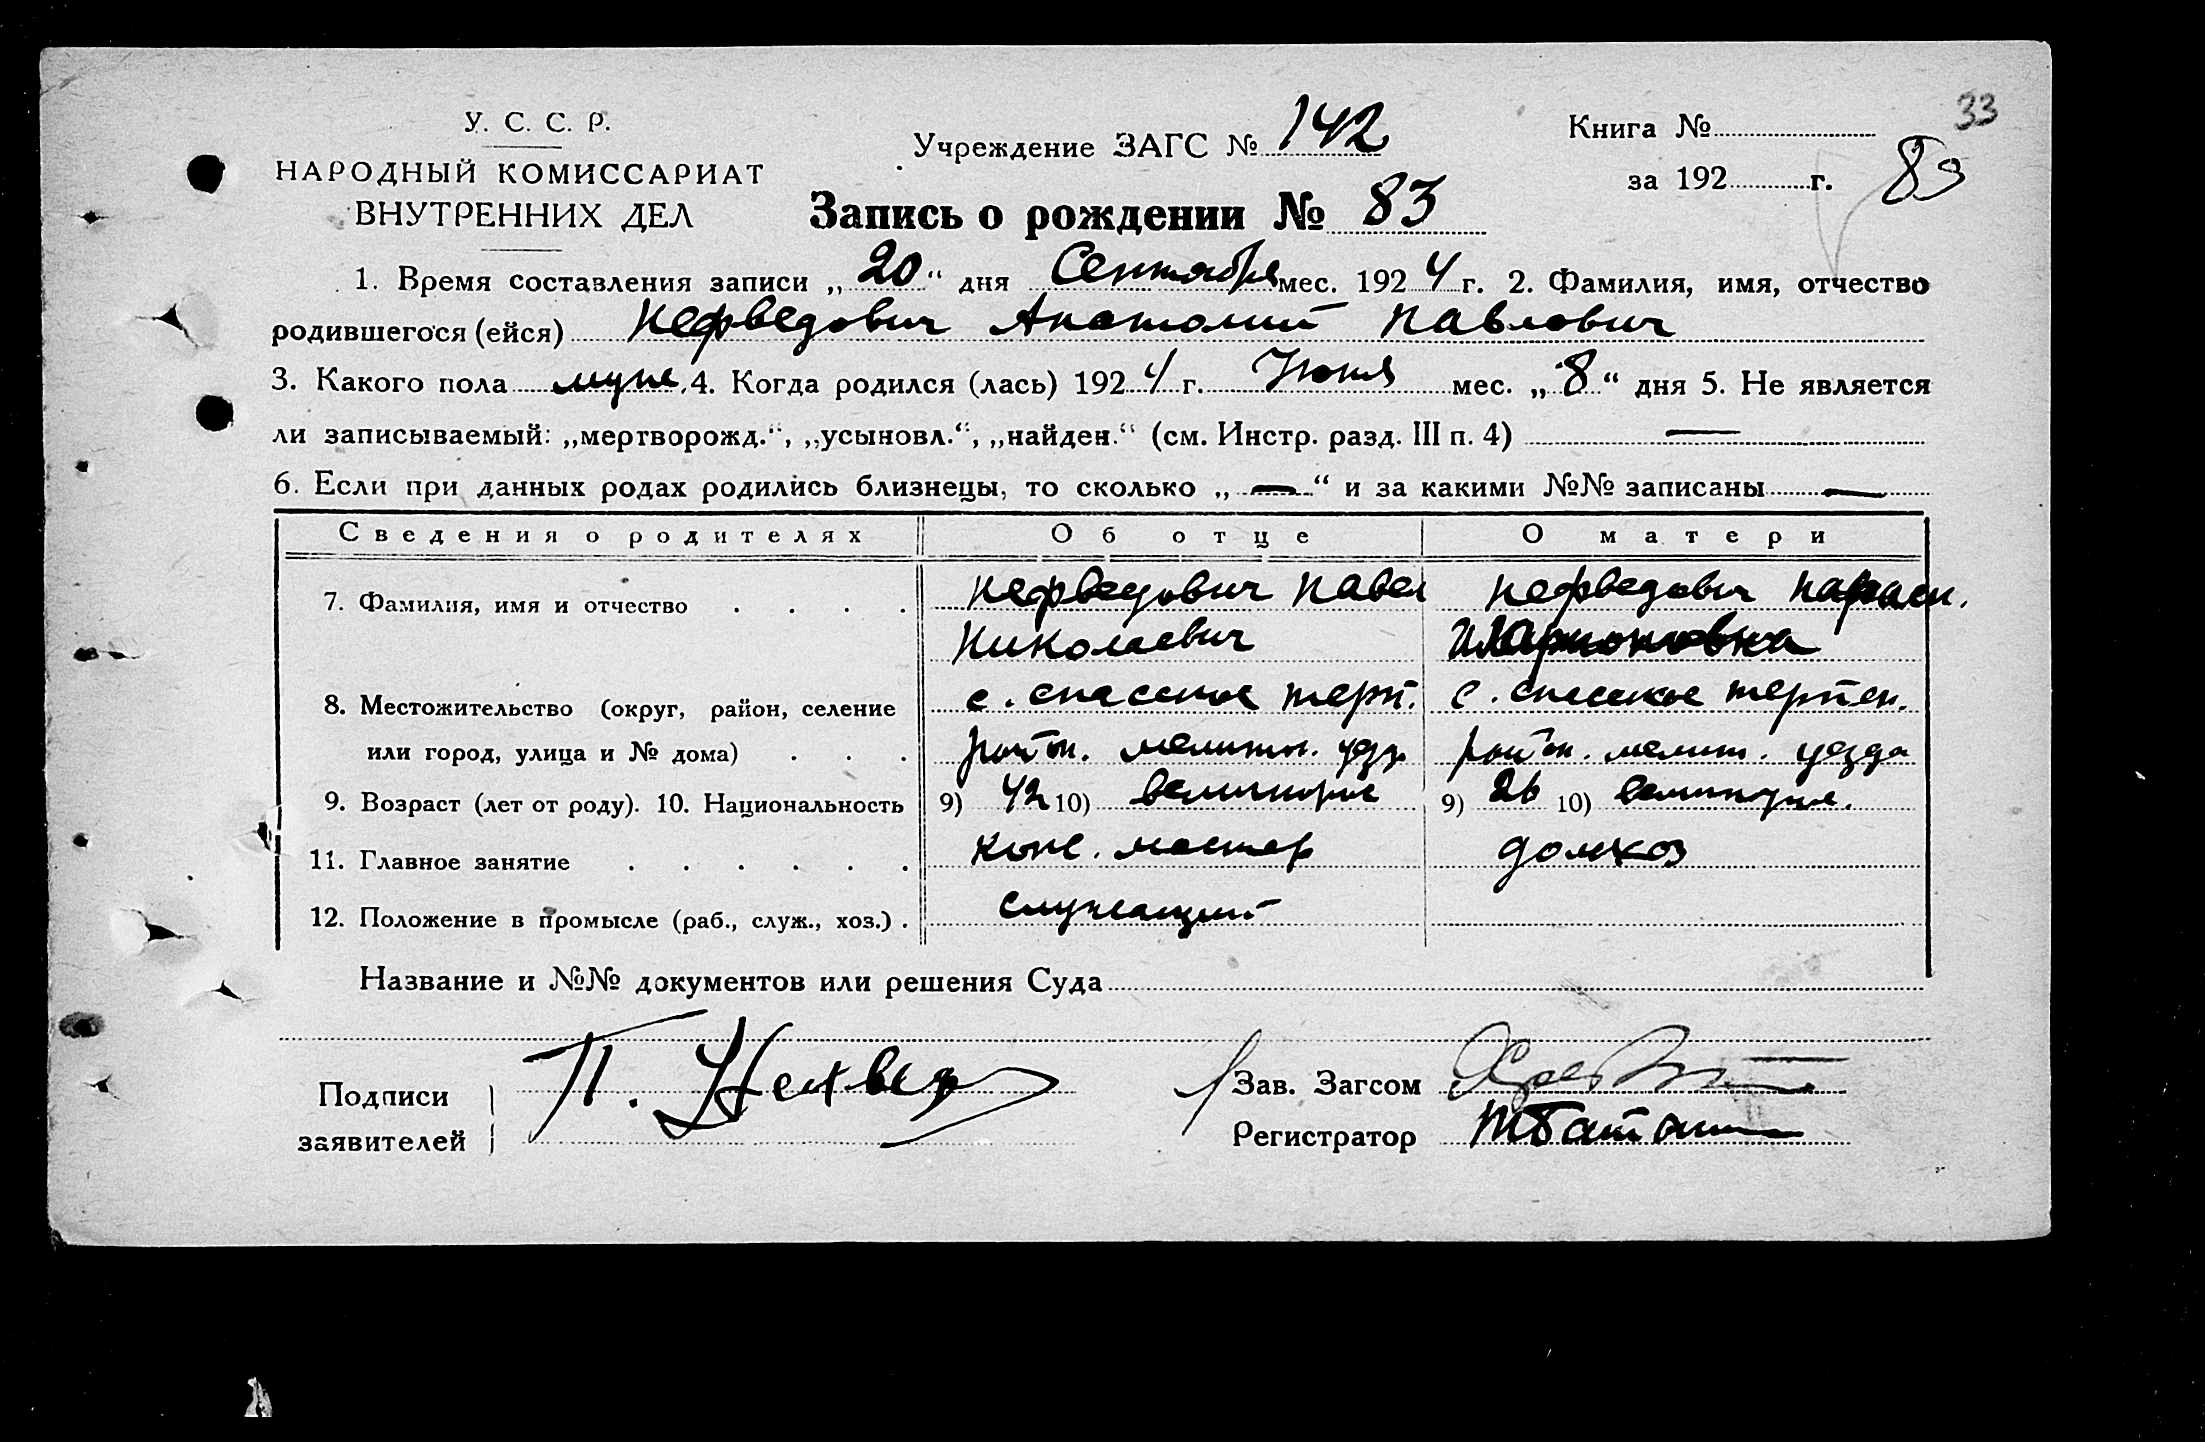 33
У. С. С. Р.
НАРОДНЫЙ КОМИССАРИАТ
ВНУТРЕННИХ ДЕЛ
Учреждение ЗАГС № 142
Книга №
за 192 г.
83
Запись о рождении № 83
1. Время составления записи „20“ дня Сентября мес. 1924 г. 2. Фамилия, имя, отчество
родившегося (ейся) Нефведович Анатолий Павлович
3. Какого пола муж. 4. Когда родился (лась) 1924 г. Июня мес. „8“ дня 5. Не является
ли записываемый: „мертворожд.“, „усыновл.“, „найден.“ (см. Инстр. разд. III п. 4) —
6. Если при данных родах родились близнецы, то сколько „—“ и за какими №№ записаны —
Сведения о родителях Об отце О матери
7. Фамилия, имя и отчество . . . . Нефведович Павел Нефведович Параск.
Николаевич Илларионовна
8. Местожительство (округ, район, селение с. Спасское терп. с. Спасское терпен.
или город, улица и № дома) . . . район. мелитоп. уезд. район. мелит. уезда
9. Возраст (лет от роду). 10. Национальность 9) 42 10) 9) 26 10)
11. Главное занятие . . . . . . мастер домхоз
12. Положение в промысле (раб., служ., хоз.) . служащий
Название и №№ документов или решения Суда
Подписи
заявителей
П.
Зав. Загсом
Регистратор